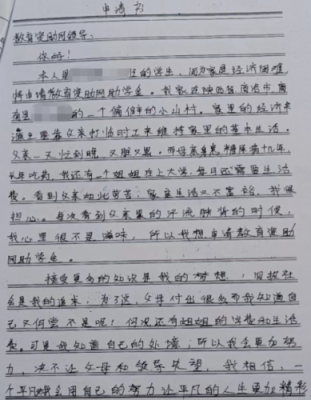 申请书
教育资助网领导：
你好！
本人是 的学生，因为家庭经济困难
特申请教育资助网助学金。我家住陕西省商洛市
的一个偏僻的小山村。家里的经济来
源主要靠父亲打临时工来维持家里的基本生活。
父亲一天忙到晚，又脏又累。而母亲患糖尿病
长年吃药，我还有一个姐姐在上大学，每日还需要生活
费。看到父亲如此辛苦，家庭生活又不富裕，我很
担心。每次看到父亲累的汗流 的时候，
我心里很不是滋味，所以我想申请教育资助
网助学金。
接受更多的知识是我的梦想，回报社
会是我的追求，为了这，父母付出很多而我知道自
己又何尝不是呢！何况还有姐姐的学费和生活
费。可是我知道自己的处境，所以我会更加努
力，决不让父母和领导失望，我相信，一
个平凡的我会用自己的努力让平凡的人生更加精彩